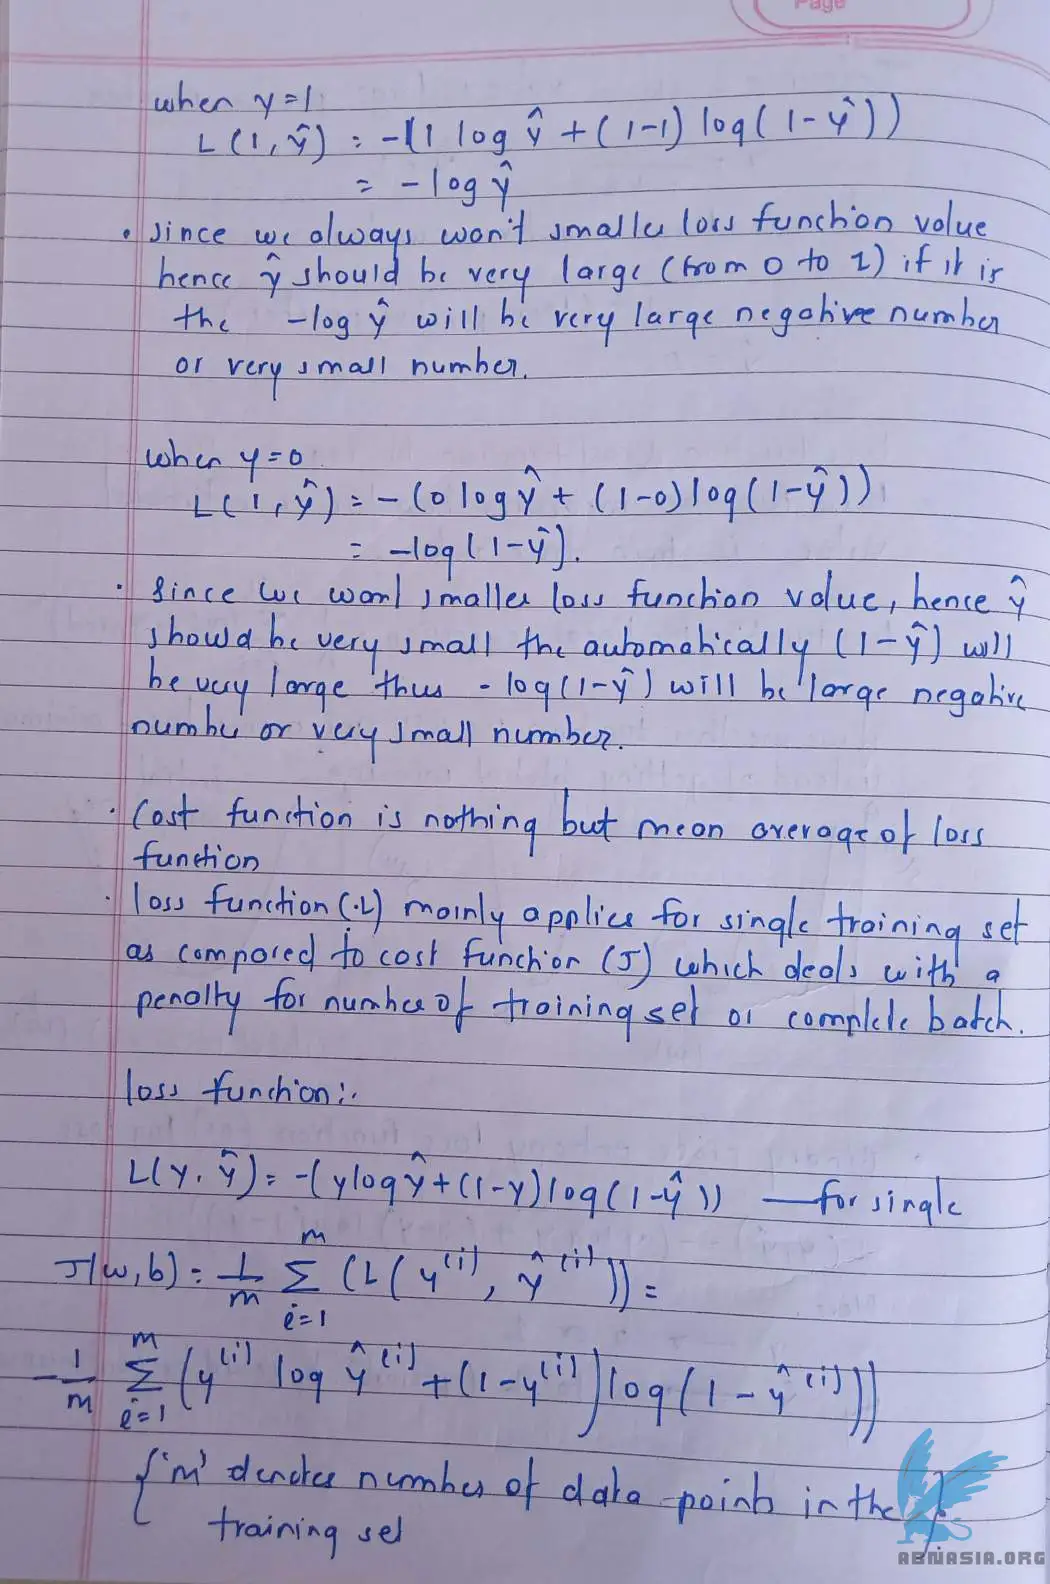 Page
when y=1
L(1, ŷ) = -(1 log ŷ + (1-1) log(1-ŷ))
= -log ŷ
• since we always won't smaller loss function value
hence ŷ should be very large (from 0 to 1) if it is
the -log ŷ will be very large negative number
or very small number.
when y=0
L(1, ŷ) = -(0 log ŷ + (1-0) log(1-ŷ))
= -log(1-ŷ).
• Since we want smaller loss function value, hence ŷ
should be very small the automatically (1-ŷ) will
be very large thus -log(1-ŷ) will be large negative
number or very small number.
• Cost function is nothing but mean average of loss
function
• loss function (L) mainly applies for single training set
as compared to cost function (J) which deals with a
penalty for number of training set or complete batch.
loss function:-
L(y, ŷ) = -(y log ŷ + (1-y) log(1-ŷ)) — for single
J(w, b) = 1/m Σ_{i=1}^{m} (L(y^(i), ŷ^(i))) =
-1/m Σ_{i=1}^{m} (y^(i) log ŷ^(i) + (1-y^(i)) log(1-ŷ^(i)))
{'m' denotes number of data points in the
training set}
ABNASIA.ORG